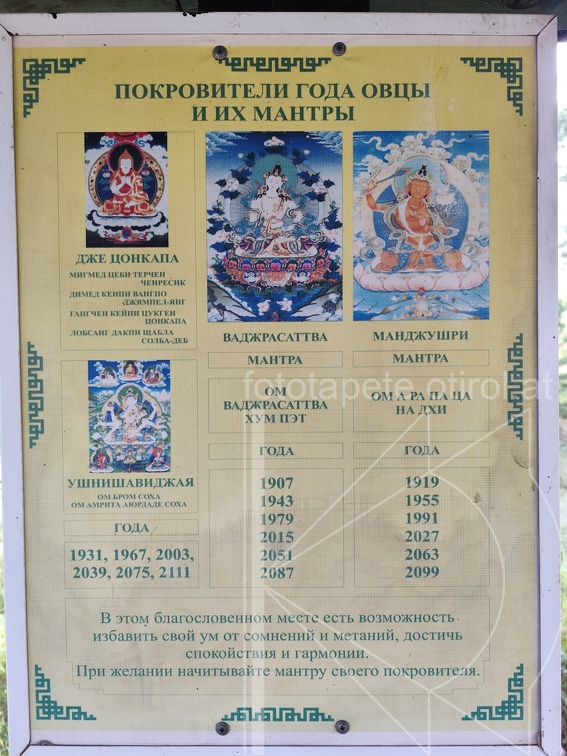 ПОКРОВИТЕЛИ ГОДА ОВЦЫ
И ИХ МАНТРЫ
ДЖЕ ЦОНКАПА
МИГМЕД ЦЕБИ-ТЕРЧЕН
ЧЕНРЕСИК
ДИМЕД КЕИПИ ВАНГПО
ДЖЯМПЕЛ-ЯНГ
ГАНГЧЕН КЕЙПИ ЦУКГЕН
ЦОНКАПА
ЛОБСАНГ ДАКПИ ЩАБЛА
СОЛБА-ДЕБ
УШНИШАВИДЖАЯ
ОМ БРОМ СОХА
ОМ АМРИТА АЮРДАДЕ СОХА
ГОДА
1931, 1967, 2003,
2039, 2075, 2111
ВАДЖРАСАТТВА
МАНТРА
ОМ
ВАДЖРАСАТТВА
ХУМ ПЭТ
ГОДА
1907
1943
1979
2015
2051
2087
МАНДЖУШРИ
МАНТРА
ОМ А РА ПА ЦА
НА ДХИ
ГОДА
1919
1955
1991
2027
2063
2099
В этом благословенном месте есть возможность
избавить свой ум от сомнений и метаний, достичь
спокойствия и гармонии.
При желании начитывайте мантру своего покровителя.
fototapete.otirol.at